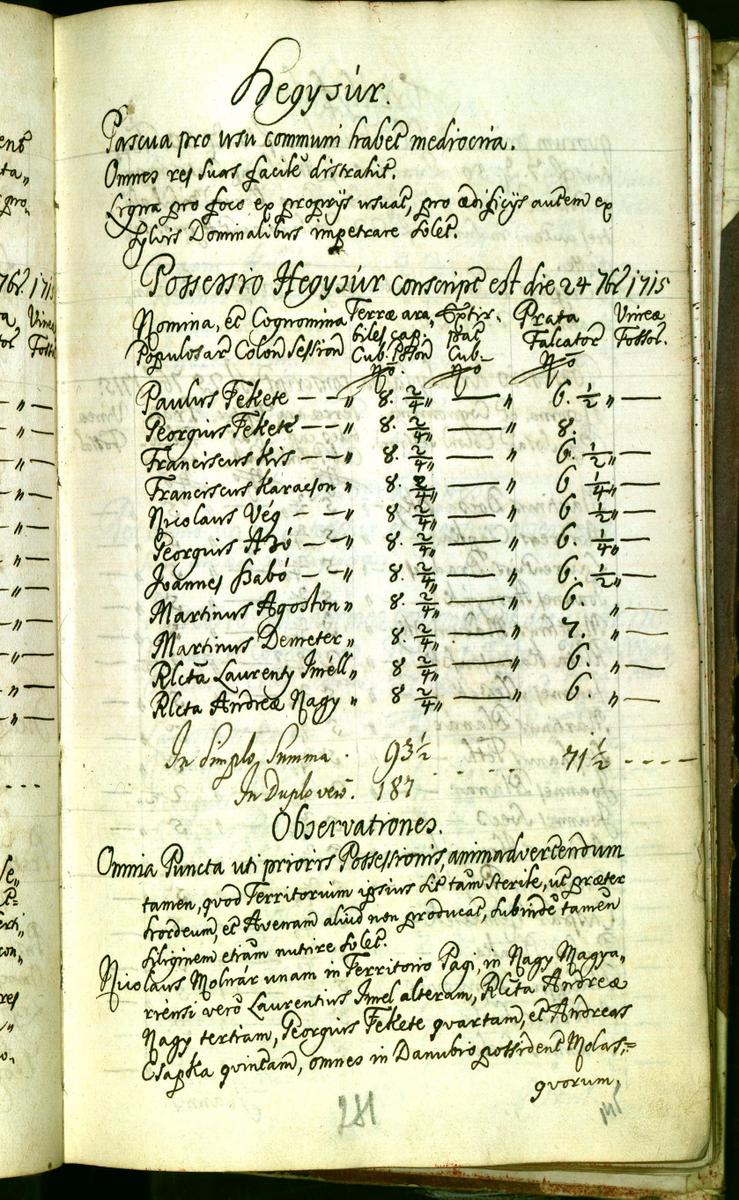 Hegysúr.
Pascua pro usu communi habet mediocria.
Omnes res suas facile distrahit.
Ligna pro foco ex proprijs usuat, pro ædificijs autem ex
sylvis Dominalibus impetrare solet.
Possessio Hegysúr conscript est die 24 7br 1715
Nomina, et Cognomina Terræ ara, Extir, Prata Vineæ
biles cap. pat Falcator Fossor.
Populosar Colon Session Cub. Poson Cub. No
No. No
Paulus Fekete — — " 8. 2/4 " —— " 6. 1/2 " —
Georgius Fekete — — " 8. 2/4 " —— " 8.
Franciscus Kis — — " 8. 2/4 " —— " 6. 1/2 " —
Franciscus Karacson " 8. 2/4 " —— " 6. 1/4 " —
Nicolaus Vég — — " 8. 2/4 " —— " 6. 1/2 " —
Georgius Abó — — " 8. 2/4 " —— " 6. 1/4 "
Joannes Szabó — — " 8. 2/4 " —— " 6. 1/2 " —
Martinus Agoston " 8. 2/4 " —— " 6. " —
Martinus Demeter " 8. 2/4 " —— " 7. " —
Rlcta Laurenty Iméll " 8 2/4 " —— " 6. " —
Rlcta Andreæ Nagy " 8 2/4 " —— " 6. " —
In Simplo Summa . 93 1/2 71 1/2 - - - -
In Duplo vero. 187
Observationes.
Omnia Puncta uti prioris Possessionis, animadvertendum
tamen, quod Territorium ipsius sit tam sterile, ut præter
hordeum, et Avenam aliud non producat, subinde tamen
siliginem etiam nutrire solet.
Nicolaus Molnár unam in Territorio Pagi, in Nagy Magya„
riensi vero Laurentius Imel alteram, Rlcta Andreæ
Nagy tertiam, Georgius Fekete quartam, et Andreas
Csapka quintam, omnes in Danubio possident Molas,
quorum,
281